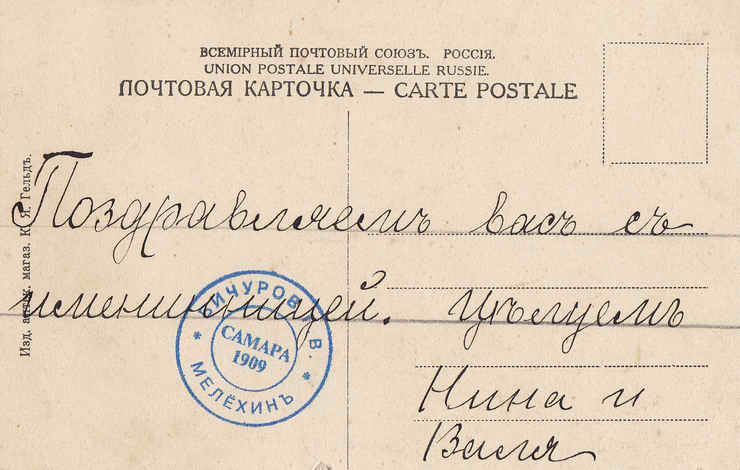 ВСЕМІРНЫЙ ПОЧТОВЫЙ СОЮЗЪ. РОССІЯ.
UNION POSTALE UNIVERSELLE RUSSIE.
ПОЧТОВАЯ КАРТОЧКА — CARTE POSTALE
Поздравляемъ васъ съ
именинницей. Цѣлуемъ
Нина и
Валя
Изд. магаз. К. Я. Гельдъ.
БИЧУРОВ В.
САМАРА
1909
МЕЛЁХИНЪ